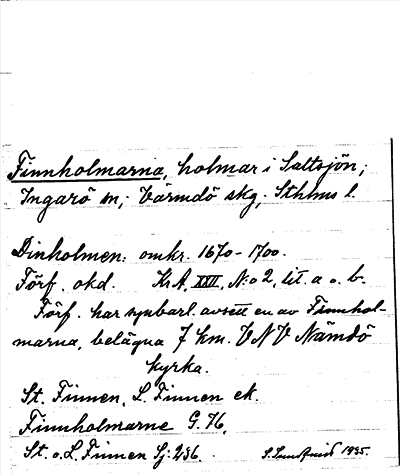 Finnholmarna, holmar i Saltsjön;
Ingarö sn; Värmdö skg; Sthlms l.
Dinholmen: omkr. 1670-1700.
Förf. okd. Kr.A. XXII, N:o 2, lit. a o. b.
Förf. har synbarl. avsett en av Finnhol-
marna, belägna 7 km. VNV Nämdö
kyrka.
St. Finnen, L. Finnen ek.
Finnholmarne G. 76.
St. o. L. Finnen Sj. 236.
S. Lundqvist 1935.